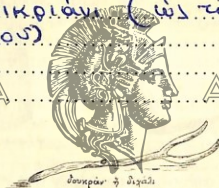 ικριάνι (ὡς τ
ου)
δουκράν ἢ διχάλι